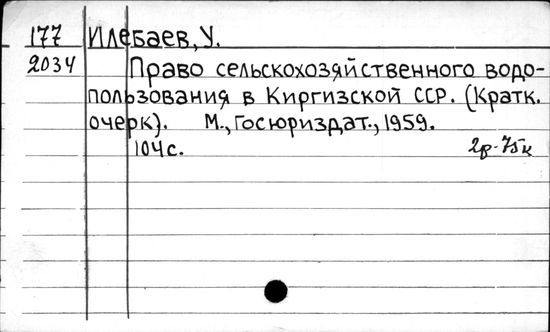 177 Илебаев, У.
2034 Право сельскохозяйственного водо-
пользования в Киргизской ССР. (Кратк.
очерк). М., Госюриздат., 1959.
104 с. 2р-75к